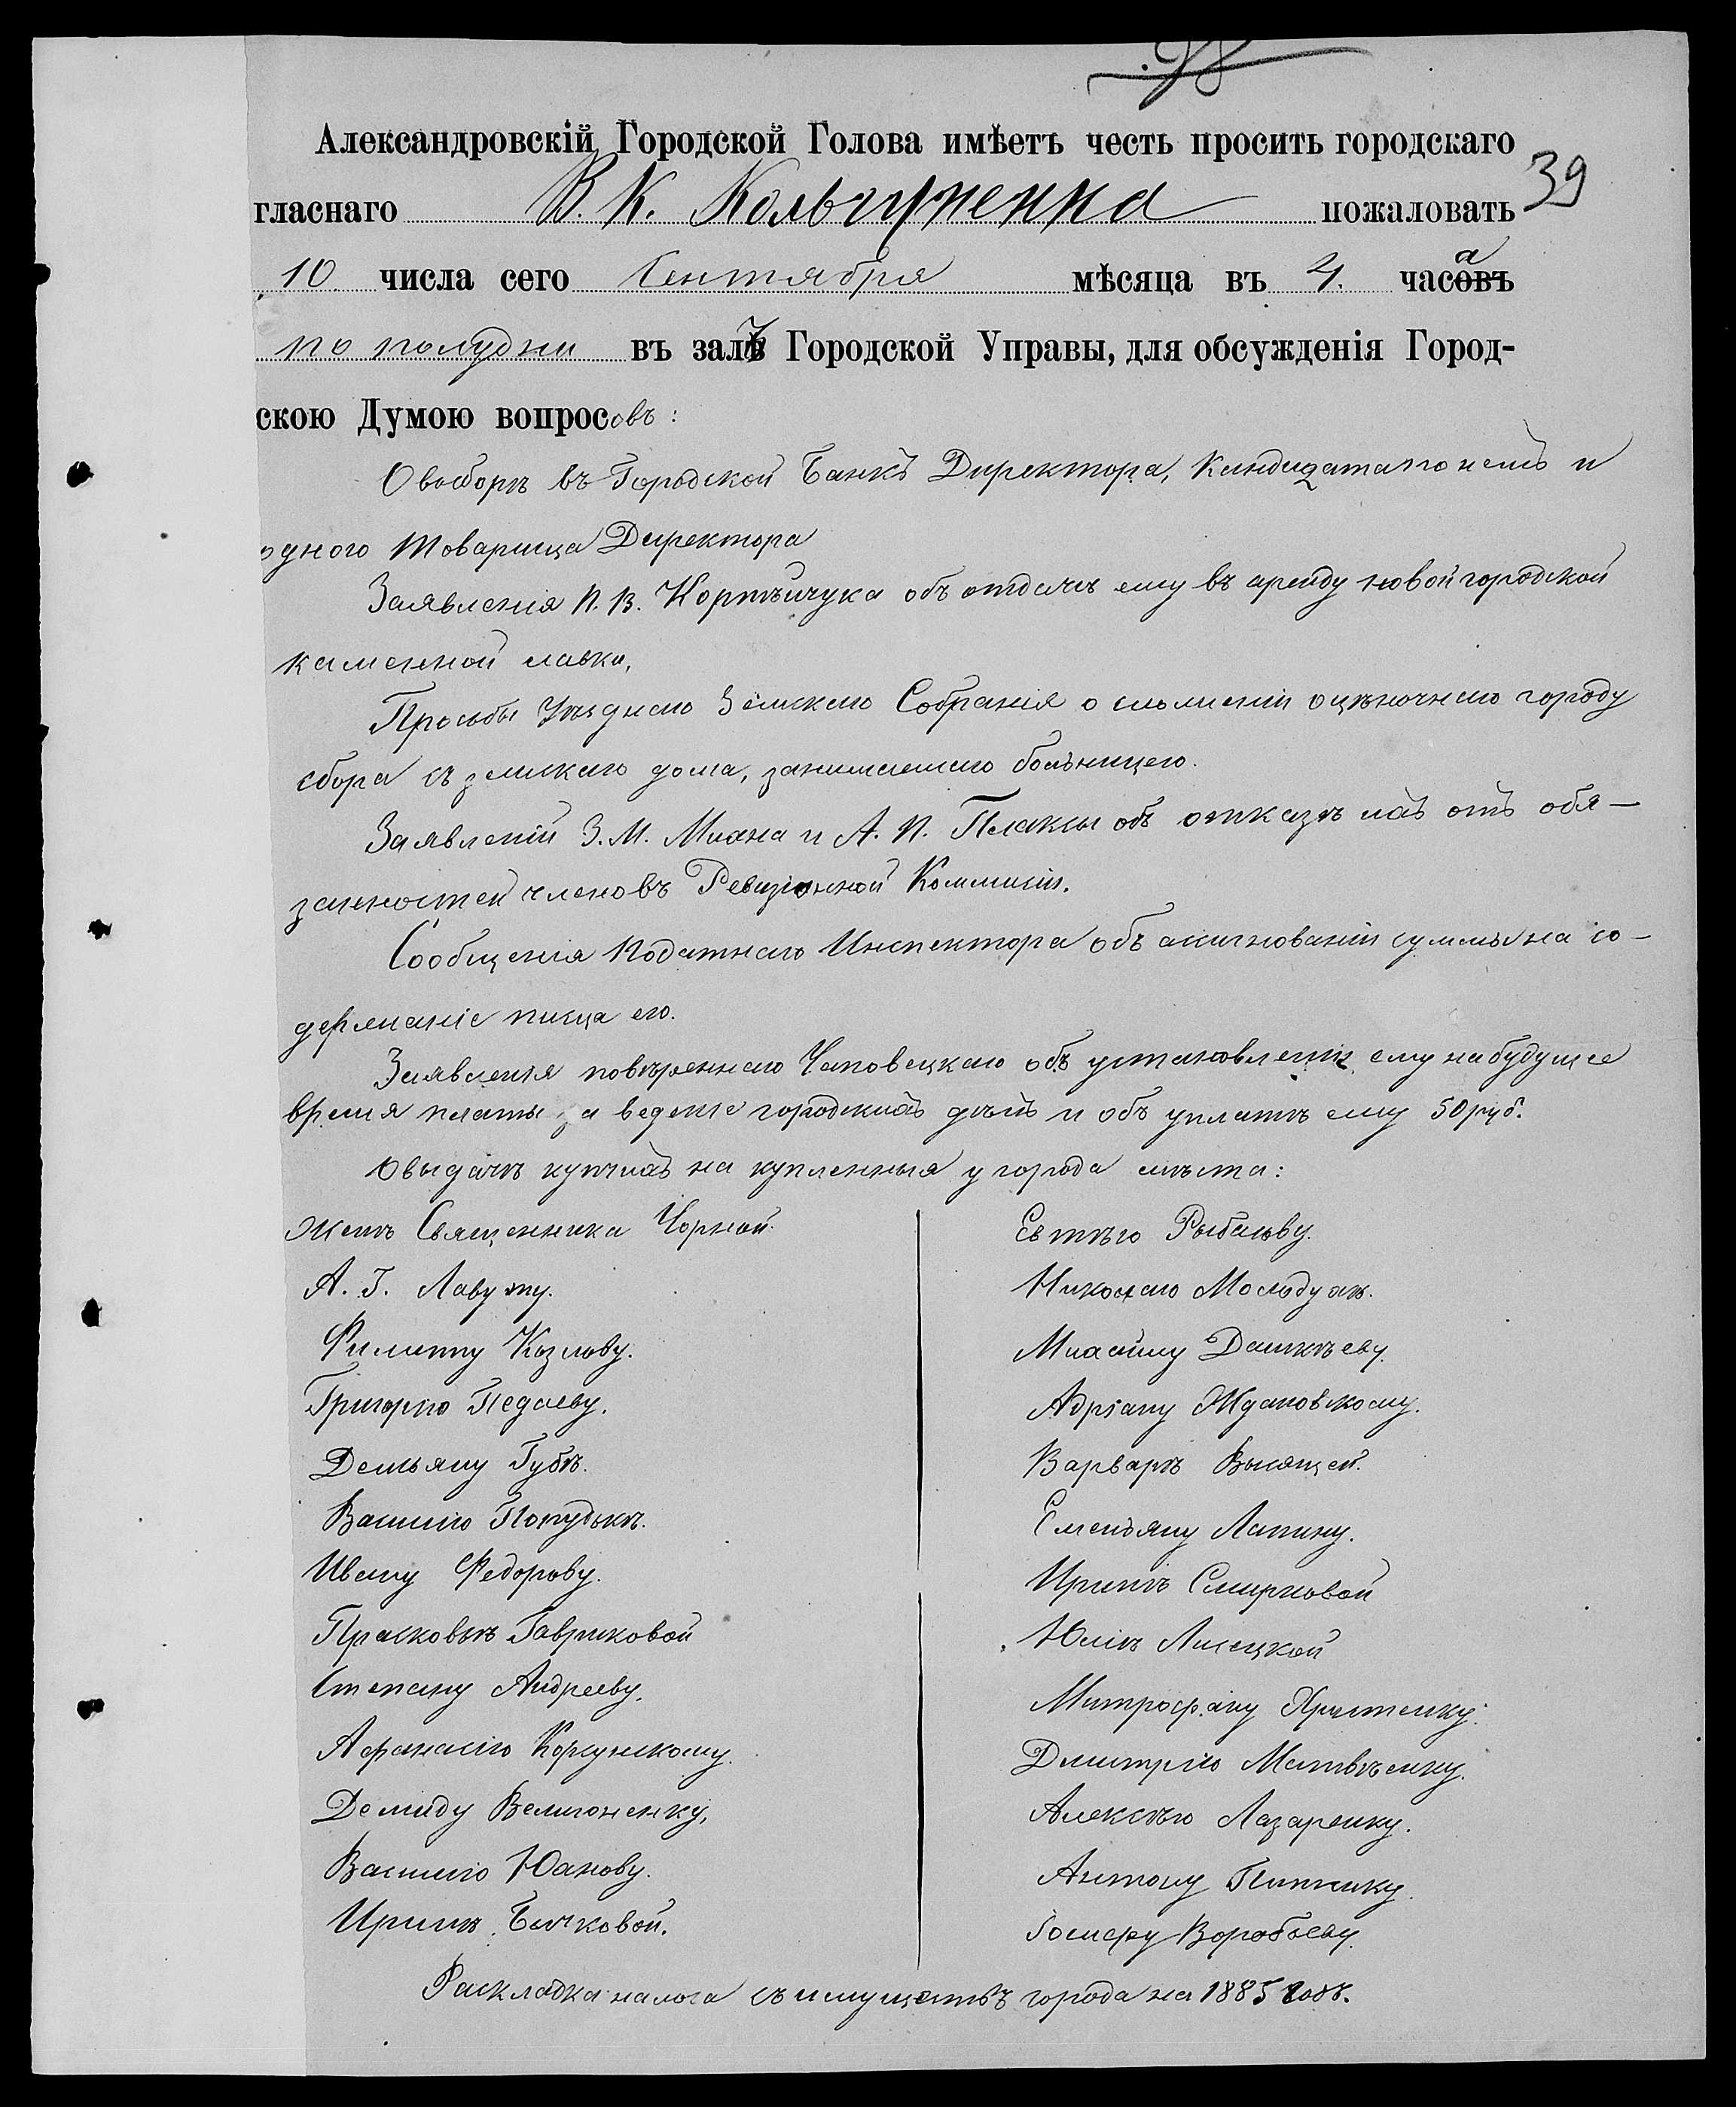 39
Александровскій Городской Голова имѣетъ честь просить городскаго
гласнаго В. К. пожаловать
10 числа сего Сентября мѣсяца въ 4. часовъ а
по полудни въ залѣ Городской Управы, для обсужденія Город-
скою Думою вопросовъ:
О выборѣ въ Городской Банкъ Директора, Кандидата по немъ и
одного Товарища Директора
Заявленія П. В. объ отдачѣ ему въ аренду новой городской
каменной лавки,
Просьбы Уѣзднаго Земскаго Собранія о сложеніи оцѣночнаго городу
сбора съ земскаго дома, занимаемаго больницею.
Заявленій З. М. Миана и А. П. Плаксы объ отказѣ ихъ отъ обя-
занностей членовъ Ревизіонной Коммисіи.
Сообщенія Податнаго Инспектора объ ассигнованіи суммы на со-
держаніе писца его.
Заявленія повѣреннаго Чаповецкаго объ установленіи ему на будущее
время платы за веденіе городскихъ дѣлъ и объ уплатѣ ему 50 руб.
О выдачѣ купчихъ на купленныя у города мѣста:
Женѣ Священника Чорной.
А. Г. Лавуту.
Филиппу Козлову.
Григорію Педаеву.
Демьяну Губѣ.
Василію
Ивану Федорову.
Прасковьѣ Гавриковой
Степану Андрееву.
Афанасію Корсунскому.
Демиду Велигоненку,
Василію Юанову.
Иринѣ Бычковой.
Евтѣю Рыбалову.
Николаю
Михаилу Дашкѣеву.
Адріану Ждановскому.
Варварѣ
Емельяну Лапину.
Иринѣ Смирновой
Юліи Лисецкой
Митрофану
Дмитрію Матвѣенку.
Алексѣю Лазаренку.
Антону
Іосифу Воробьеву.
Раскладка налога съ имуществъ города на 1885 годъ.